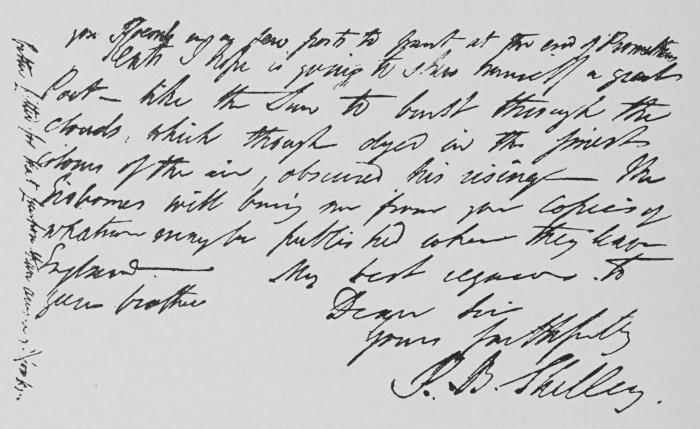 you send me a few posts to print at the end of Prometheus
Keats I hope is going to shew himself a great
Poet – like the Sun to burst through the
clouds, which though dyed in the finest
colours of the air, obscured his rising – The
Gisbornes will bring me from you copies of
whatever may be published when they leave
England – My best regards to
your brother
Dear Sir
Yours faithfully
P. B. Shelley.
better fitted for that